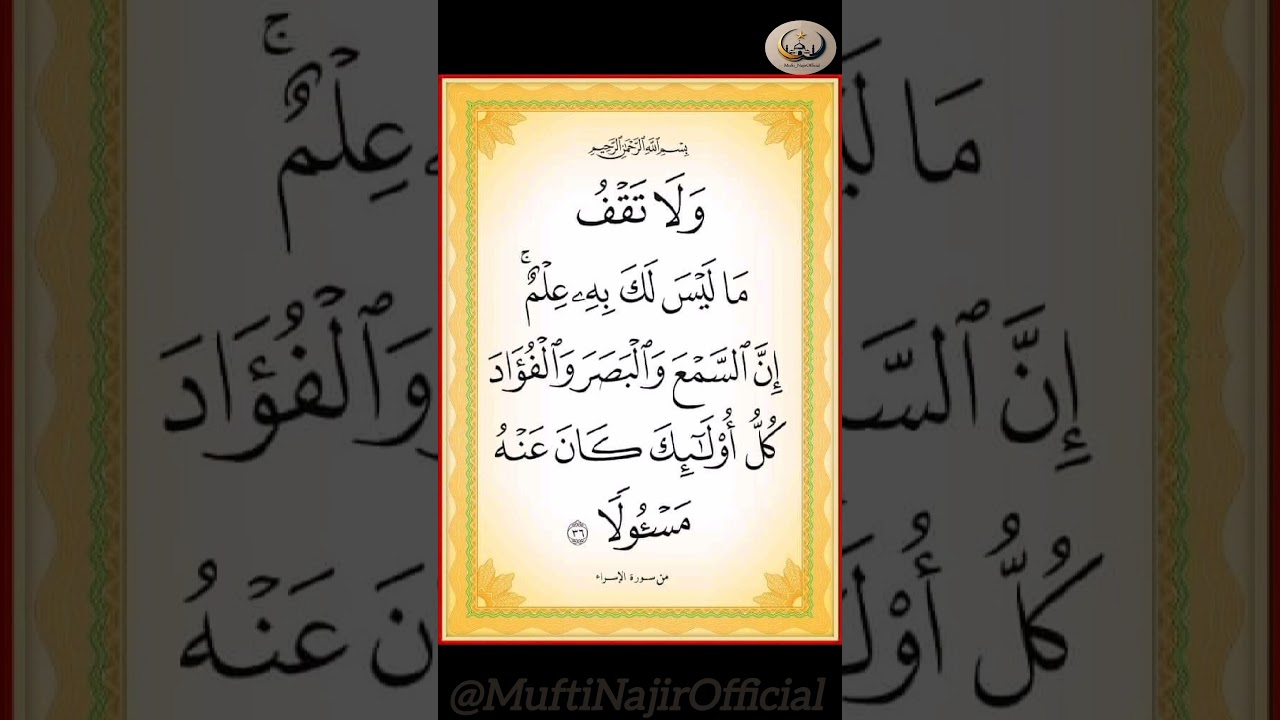 Mufti_NajirOfficial
بِسْمِ ٱللَّهِ ٱلرَّحْمَٰنِ ٱلرَّحِيمِ
وَلَا تَقْفُ
مَا لَيْسَ لَكَ بِهِۦ عِلْمٌ ۚ
إِنَّ ٱلسَّمْعَ وَٱلْبَصَرَ وَٱلْفُؤَادَ
كُلُّ أُو۟لَـٰٓئِكَ كَانَ عَنْهُ
مَسْـُٔولًا ٣٦
من سورة الإسراء
@MuftiNajirOfficial